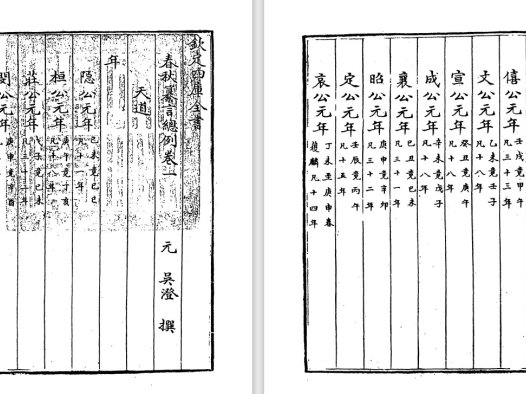 欽定四庫全書
春秋纂言總例卷一
元 吳澄 撰
天道
年
隱公元年 己未竟己巳 凡十一年
桓公元年 庚午竟丁亥 凡十八年
莊公元年 戊子竟己未 凡三十二年
閔公元年 庚申竟辛酉
僖公元年 壬戌竟甲午 凡三十三年
文公元年 乙未竟壬子 凡十八年
宣公元年 癸丑竟庚午 凡十八年
成公元年 辛未竟戊子 凡十八年
襄公元年 己丑竟己未 凡三十一年
昭公元年 庚申竟辛卯 凡三十二年
定公元年 壬辰竟丙午 凡十五年
哀公元年 丁未至庚申春 獲麟凡十四年